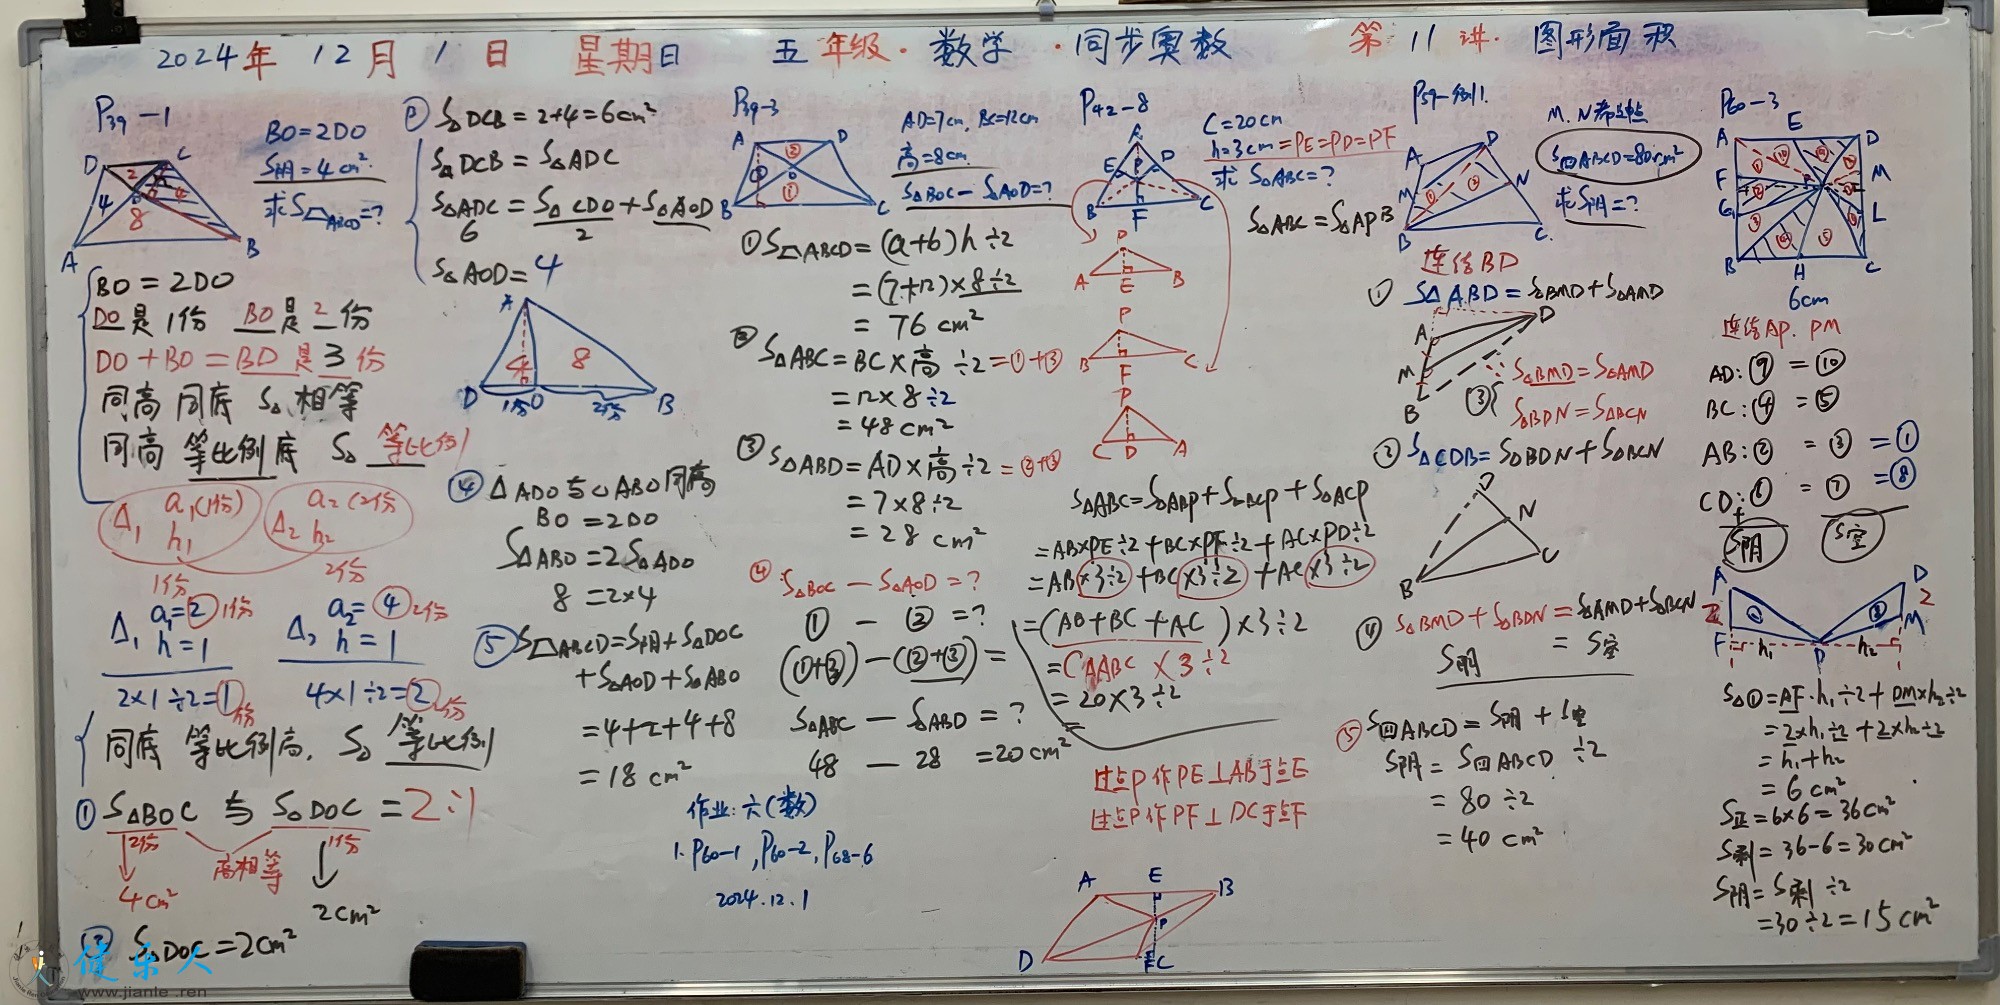 2024年 12月 1日 星期日 五年级·数学·同步奥数 第11讲·图形面积
P39-1
BO=2DO
S阴=4cm²
求S△ABCD=?
D C
2 4
4 8
A B
BO=2DO
DO是1份 BO是2份
DO+BO=BD是3份
同高 同底 S△相等
同高 等比例底 S△ 等比例
△₁ a₁(1份) h₁
△₂ a₂(2份) h₂
1份 2份
△₁ a₁=2 1份 h=1
△₂ a₂=4 2份 h=1
2×1÷2=1份
4×1÷2=2份
同底 等比例高, S△ 等比例
① S△BOC 与 S△DOC=2:1
2份 高相等 1份
4cm² 2cm²
② S△DOC=2cm²
② S△DCB=2+4=6cm²
S△DCB=S△ADC
S△ADC=S△CDO+S△AOD
6 2
S△AOD=4
A
4 8
D 1份 O 2份 B
④ △ADO与△ABO同高
BO=2DO
S△ABO=2S△ADO
8=2×4
⑤ S△ABCD=S阴+S△DOC
+S△AOD+S△ABO
=4+2+4+8
=18cm²
作业:六(数)
1.P60-1,P60-2,P68-6
2024.12.1
P39-3
AD=7cm, BC=12cm
高=8cm
S△BOC-S△AOD=?
A D
② ③ ①
B C
① S△ABCD=(a+b)h÷2
=(7+12)×8÷2
=76cm²
② S△ABC=BC×高÷2=①+③
=12×8÷2
=48cm²
③ S△ABD=AD×高÷2=②+③
=7×8÷2
=28cm²
④ S△BOC-S△AOD=?
①-②=?
(①+③)-(②+③)=
S△ABC-S△ABD=?
48-28=20cm²
P42-8
C=20cm
h=3cm=PE=PD=PF
求S△ABC=?
A
E P D
B F C
S△ABC=S△APB
P
A E B
P
B F C
P
C D A
S△ABC=S△ABP+S△BCP+S△ACP
=AB×PE÷2+BC×PF÷2+AC×PD÷2
=AB×3÷2+BC×3÷2+AC×3÷2
=(AB+BC+AC)×3÷2
=C△ABC×3÷2
=20×3÷2
=
过点P作PE⊥AB于点E
过点P作PF⊥DC于点F
A E B
P
D F C
P59-例1.
M.N都是中点
S四ABCD=80cm²
求S阴=?
A D
M N
B C
连结BD
① S△ABD=S△BMD+S△AMD
D
A
M
B
③ S△BMD=S△AMD
S△BDN=S△BCN
② S△CDB=S△BDN+S△BCN
D
N
B C
④ S△BMD+S△BDN=S△AMD+S△BCN
S阴 = S空
⑤ S四ABCD=S阴+S空
S阴=S四ABCD÷2
=80÷2
=40cm²
P60-3
A E D
F M
G L
B H C
6cm
连结AP.PM
AD:⑨=⑩
BC:④=⑤
AB:②=③=①
CD:⑥=⑦=⑧
S阴 S空
A D
2 2
F h₁ P h₂ M
S△①=AF·h₁÷2+DM×h₂÷2
=2×h₁÷2+2×h₂÷2
=h₁+h₂
=6cm²
S正=6×6=36cm²
S剩=36-6=30cm²
S阴=S剩÷2
=30÷2=15cm²
健乐人
www.jianle.ren